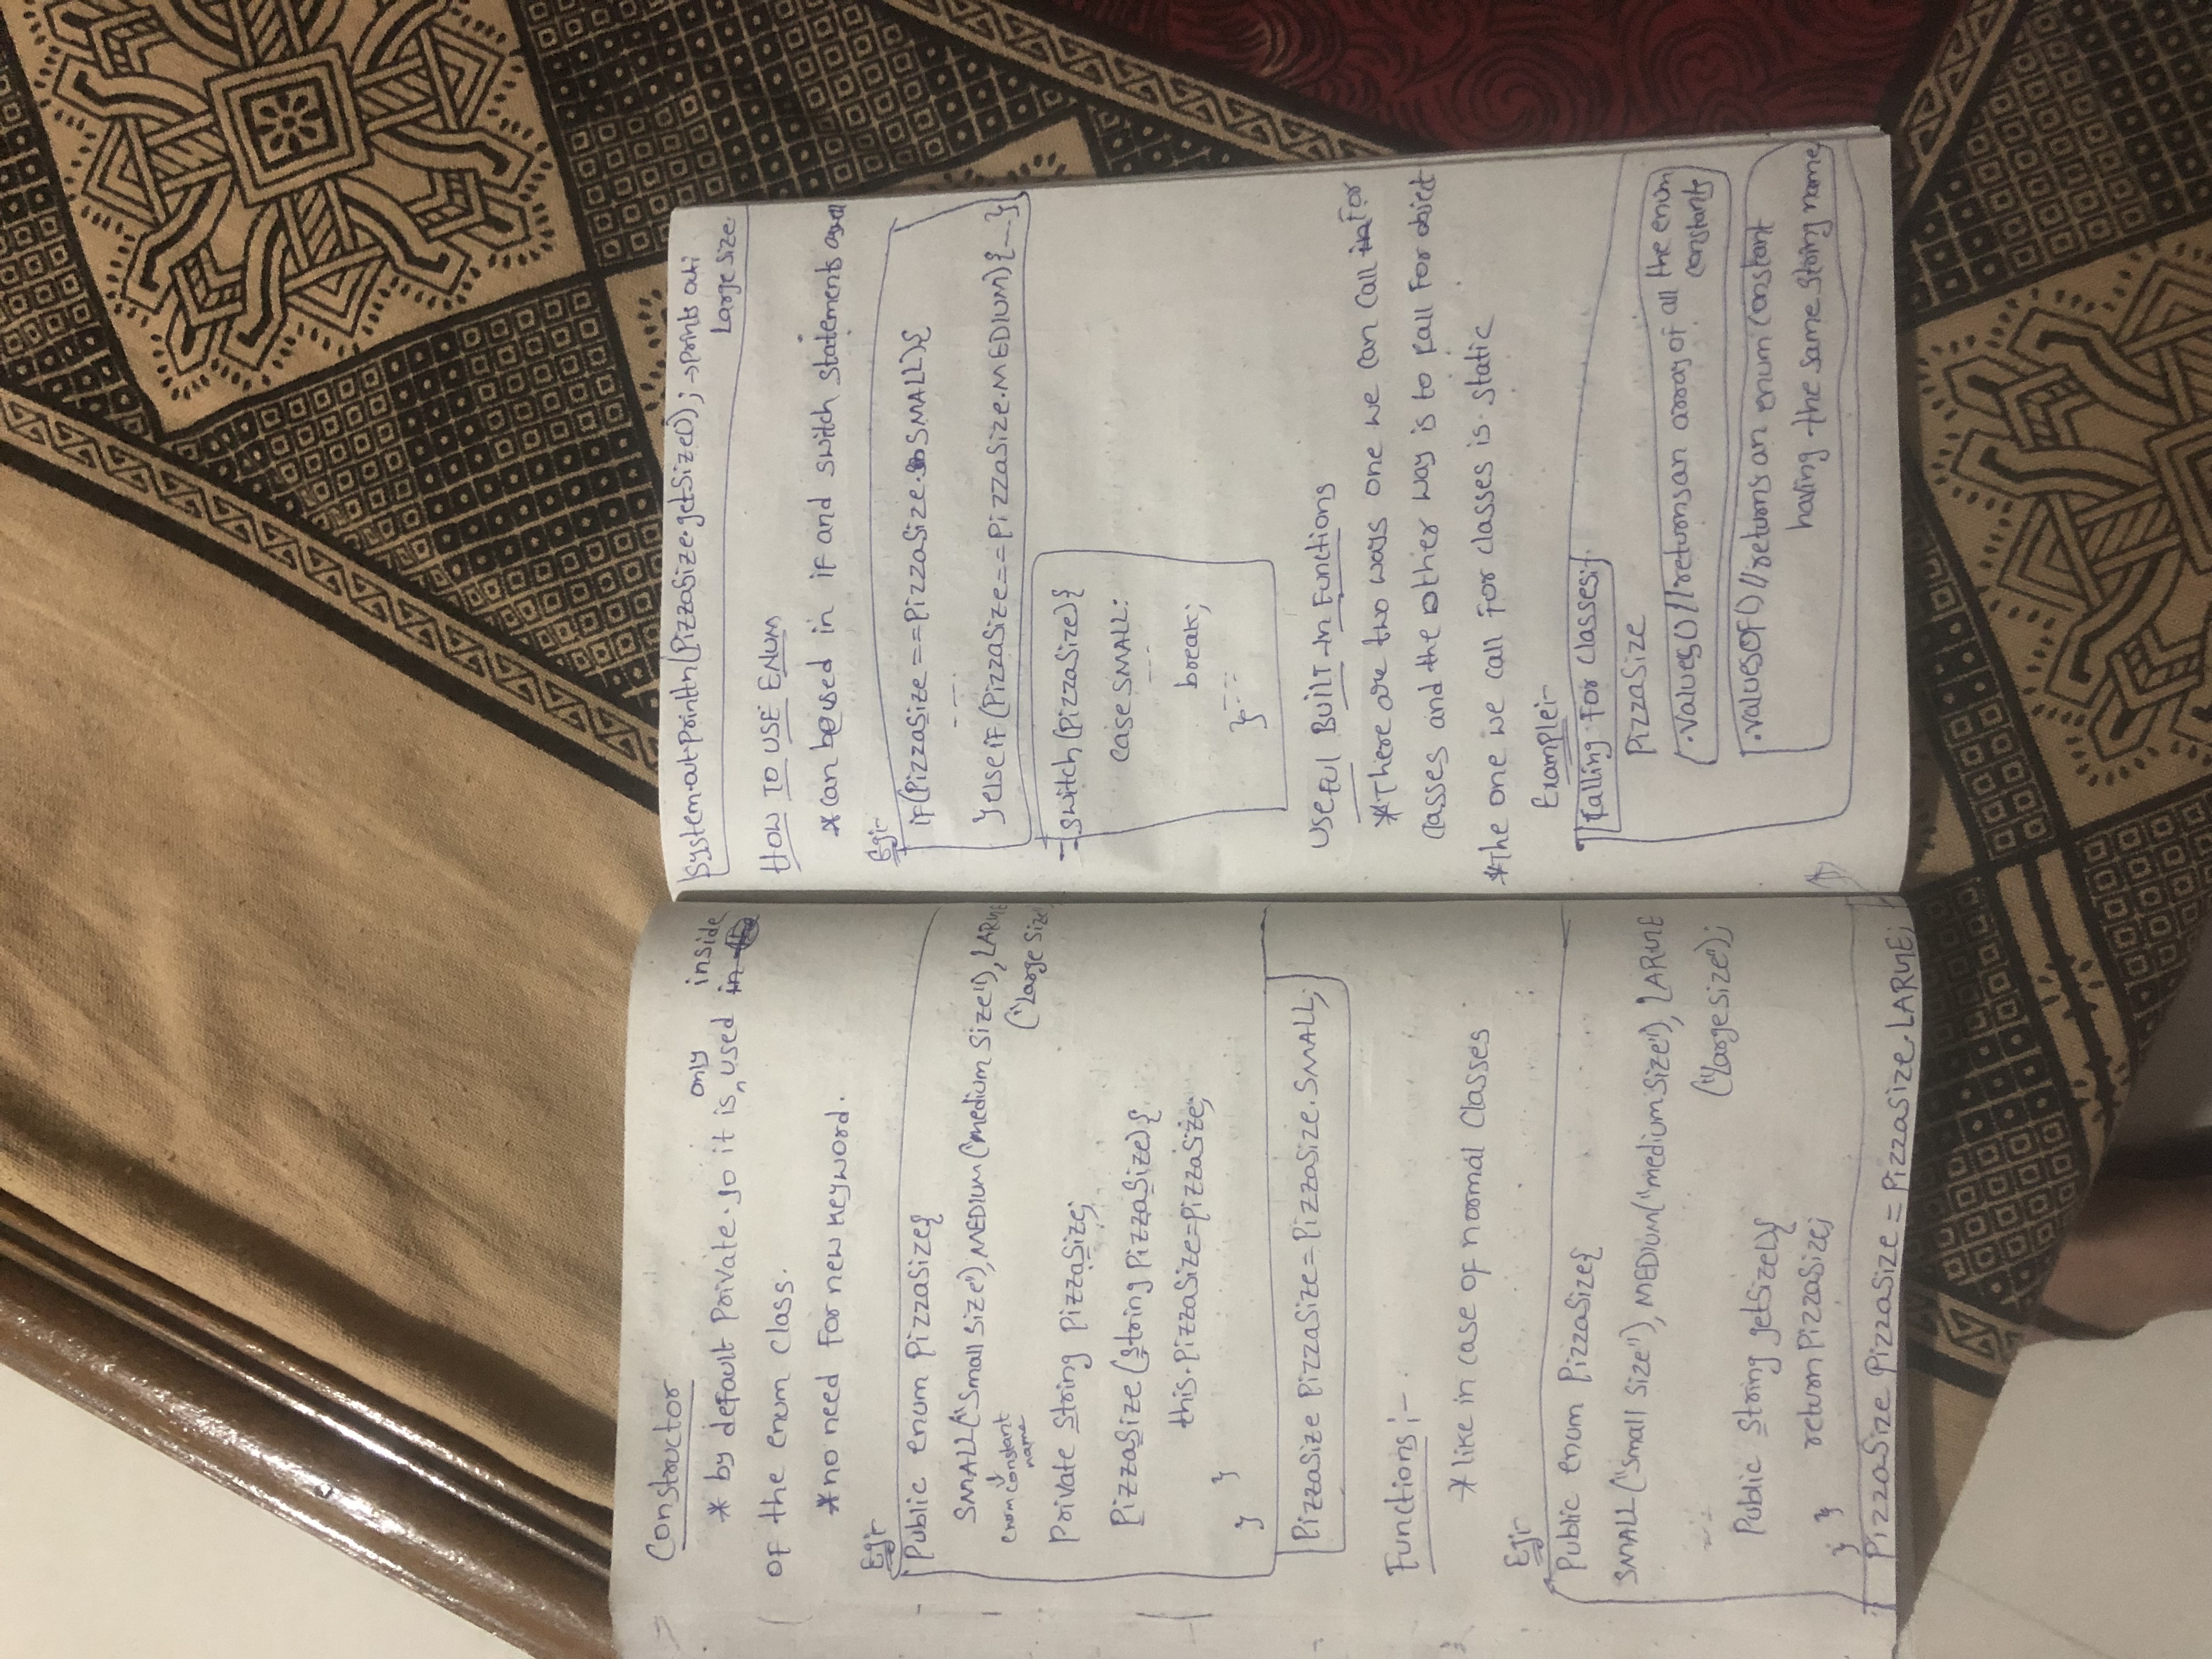 Constructor
* by default Private. so it is only used inside
of the enum class.
* no need for new keyword.
Eg:-
Public enum PizzaSize{
SMALL("Small Size"), MEDIUM("medium Size"), LARGE
enum constant
name
("Large Size"
Private String PizzaSize;
PizzaSize (String PizzaSize){
this.PizzaSize=PizzaSize;
}
}
PizzaSize PizzaSize = PizzaSize.SMALL;
Functions:-
* like in case of normal Classes
Eg:-
Public enum PizzaSize{
SMALL("Small Size"), MEDIUM("medium Size"), LARGE
("Large size");
Public String getSize(){
return PizzaSize;
} }
PizzaSize PizzaSize = PizzaSize.LARGE;
System.out.Println(PizzaSize.getSize()); → Prints out:
Large Size.
HOW TO USE ENUM
* can be used in if and switch statements aswell
Eg:-
if(PizzaSize == PizzaSize.SMALL){
---
}elseif (PizzaSize==PizzaSize.MEDIUM){---}
switch (PizzaSize){
case SMALL:
---
break;
---
}
USEFUL BUILT-In Functions
* There are two ways one we can call for
classes and the other way is to call for object
* The one we call for classes is static
Example:-
Calling for classes:-
PizzaSize
.values() // returns an array of all the enum
constants
.valuesOf() // returns an enum constant
having the same string name